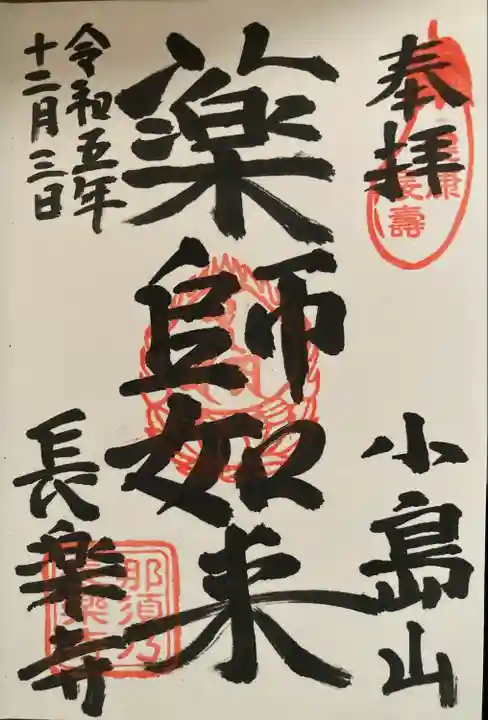 奉拝
小島山
薬師如来
令和五年
十二月三日
長楽寺
康
壽
那須乃